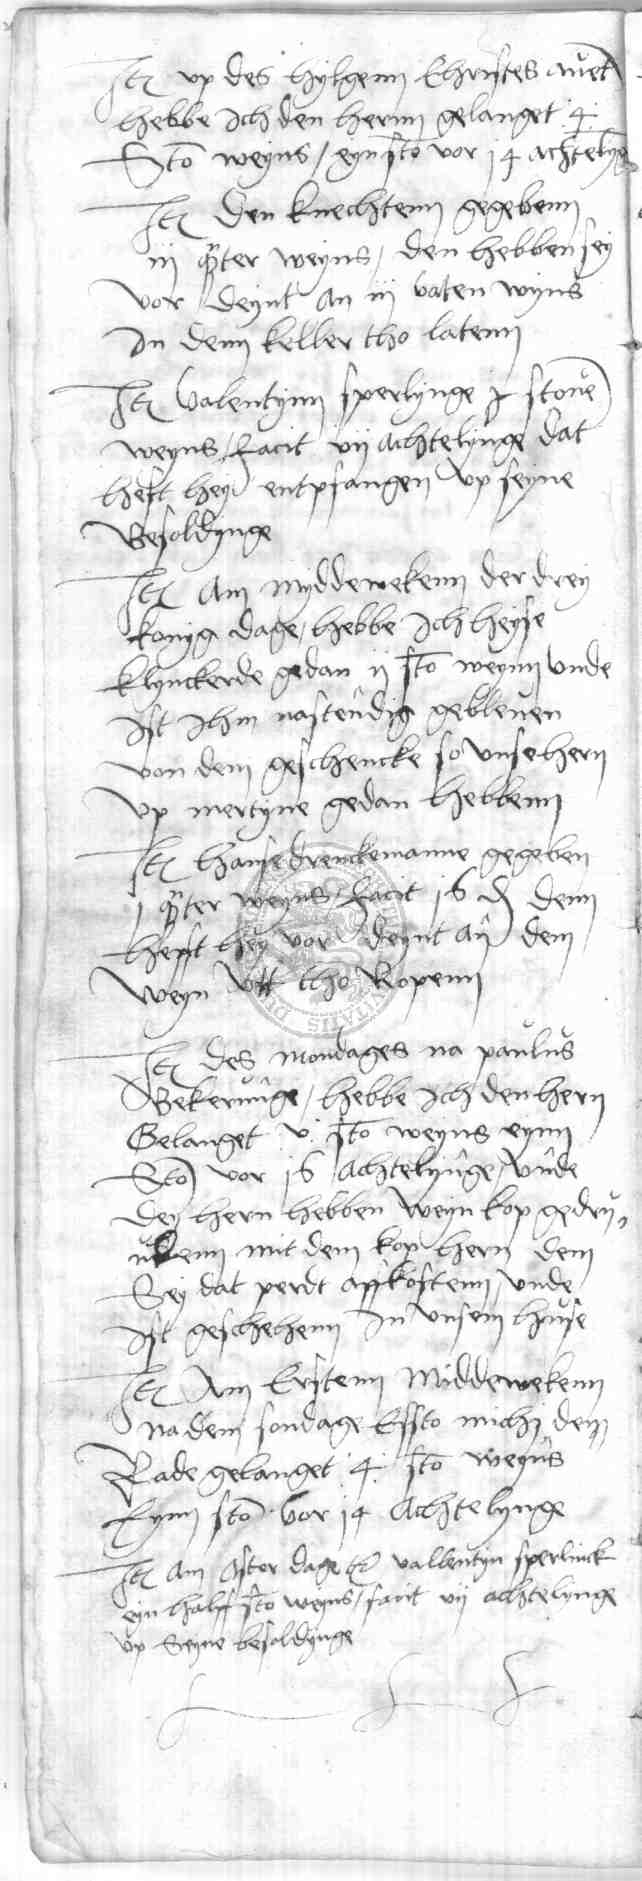 Itē up des hylgenn Christes avēt
hebbe Ich den hernn gelanget 4
Sto weyns / eyn sto vor 14 achtelyg
Itē den knechtenn gegebenn
iij q̄rter weyns / den hebben sey
vor deynt an iij vaten wyns
In denn keller tho latenn
Itē valentynn sperlynge stove
weyns / facit vij achtelynge dat
heft hey entpfangen up seyne
Besoldynge
Itē Am myddewekenn der drey
konyg dage / hebbe Ich heyse
klynckerde gedan ij sto weynn unde
Ist Ihm nastendig gebleven
von dem geschencke so unse hern
up mertyne gedan hebbenn
Itē hanse drenckemanne gegeben
1 q̄rter weyns / facit 16 ₰ denn
hefft hey vor deynt an dem
weyn utt tho Ropenn
Itē des mondages na paulus
Bekerunge / hebbe Ich den hern
Gelanget v sto weyns eynn
Sto vor 16 achtelynge / unde
dey hern hebben weyn kop gedru
nkenn mit dem kop hern dem
Sey dat perdt affkostenn / unde
Ist geschehenn In unsem huse
Itē Am Erstenn Middewekenn
na dem sondage Essto michi dem
Rade gelanget 4 sto weyns
Eynn sto vor 14 Achtelynge
Itē am dage vallentyn sperlinck
eyn halff sto weyns / facit vij achtelynge
up Seyne besoldynge